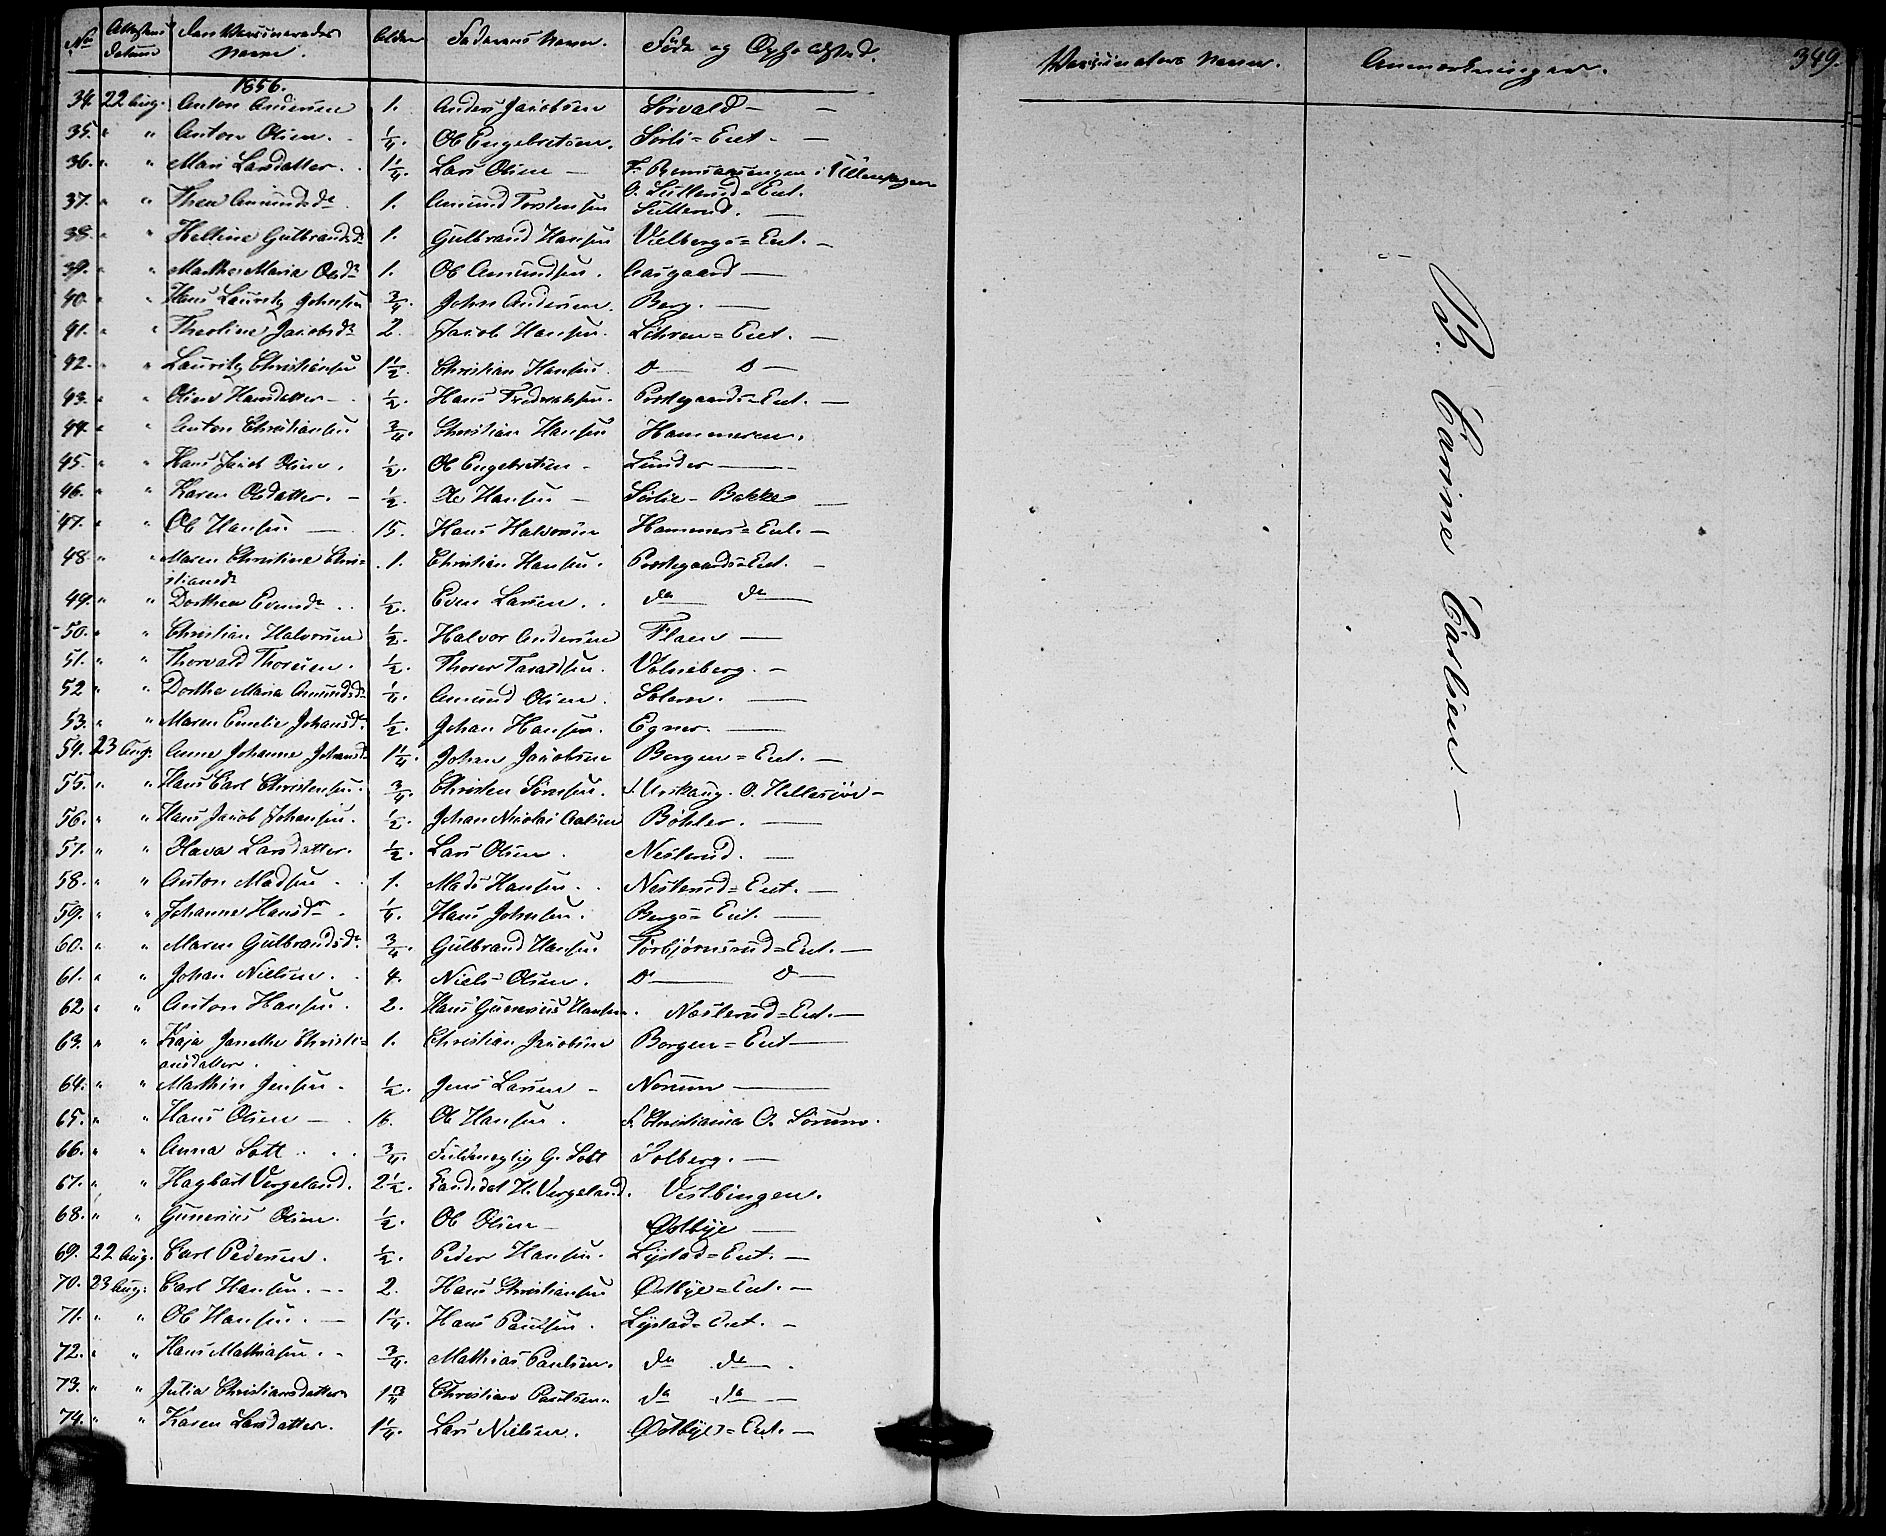 No Attestens Datum Den Vaccineredes Navn. Alder Faderens Navn. Føde og Opholdssted. Vaccinators Navn. Anmærkninger. 349.
1856.
34. 22 Aug. Anton Andersen 1. Anders Jacobsen Sørvald —
35. " " Anton Olsen. 1/4. Ole Engebretsen. Sørli=Eiet. —
36. " " Mari Larsdatter. 1 1/4. Lars Olsen — F. i Ullensager
O. Sutterud=Eiet.
37. " " Thea Amundsdr 1. Amund Torstensen Sutterud. —
38. " " Helline Gulbrandsdr 1. Gulbrand Hansen Vielbergs=Eiet. —
39. " " Marthe Maria Olsdr 1. Ole Amundsen. Aasgaard —
40. " " Hans Lauritz Johnsen 3/4. John Andersen. Berg. —
41. " " Theoline Jacobsdr 2. Jacob Hansen. Lihren=Eiet. —
42. " " Lauritz Christiansen 1 1/2. Christian Hansen. D — D —
43. " " Oline Hansdatter — 1/2. Hans Frederiksen. Prestegaards=Eiet. —
44. " " Anton Christiansen 3/4. Christian Hansen Hammeren.
45. " " Hans Jacob Olsen. 1/2. Ole Engebretsen — Linder —
46. " " Karen Olsdatter. — 1/2. Ole Hansen — Sørlie-Bakke —
47. " " Ole Hansen — 15. Hans Halvorsen Hammers=Eiet. —
48. " " Maren Christine Chri= 1. Christian Hansen. Prestegaards=Eiet. —
stiansdr
49. " " Dorthea Evensdr 1/2. Even Larsen. do do
50. " " Christian Halvorsen 1/2. Halvor Andersen Flaen —
51. " " Thorvald Thoresen. 1/2. Thorer Taraldsen. Valneberg. —
52 " " Dorthe Maria Amundsdr 1/4. Amund Olsen. Solem. —
53. " " Maren Emelie Johansdr 1/2. Johan Hansen. Egner. —
54. 23 Aug. Anne Johanne Johansdr 1 1/4. Johan Jacobsen Borgen=Eiet. —
55. " " Hans Carl Christensen. 3/4. Christen Sørensen. F. Urskaug. O. Hellesjøe —
56. " " Hans Jacob Johansen. 1/2. Johan Nicolai Bøhler. —
57. " " Olava Larsdatter. 1/2. Lars Olsen. Nesterud. —
58. " " Anton Madsen. 1. Mads Hansen. Nesterud=Eiet. —
59. " " Johanne Hansdr. 1/4. Hans Johnsen. Bergs=Eiet. —
60. " " Maren Gulbrandsdr. 3/4. Gulbrand Hansen Torbjørnsrud=Eiet. —
61. " " Johan Nielsen. 4. Niels Olsen. D — D —
62 " " Anton Hansen. 2. Hans Gunerius Hansen. Nesterud=Eiet. —
63. " " Kaja Janethe Christi= 1. Christian Jacobsen Borgen=Eiet —
ansdatter.
64. " " Mathin Jensen. 1/2. Jens Larsen — Norum —
65. " " Hans Olsen — 16. Ole Hansen. F. Christiania O. Sørum.
66. " " Anna Sott 3/4. Fuldmægtig G. Sott Solberg. —
67. " " Hagbart Vergeland. 2 1/2. Candidat H. Vergeland. Vestbingen.
68. " " Gunerius Olsen. 1/2. Ole Olsen — Østbye —
69. 22 Aug. Carl Pedersen. 1/2. Peder Hansen. Lystad=Eiet. —
70. 23 Aug. Carl Hansen. — 2. Hans Christiansen Østbye=Eiet. —
71. " " Ole Hansen. — 1 1/4. Hans Paulsen. Lystad=Eiet. —
72. " " Hans Mathiasen. — 3/4. Mathias Paulsen. do do
73. " " Julia Christiansdatter 1 3/4 Christian Paulsen. do do —
74. " " Karen Larsdatter. 1 1/4. Lars Nielsen. Østbye=Eiet. —
B. Carine Carlsen. —